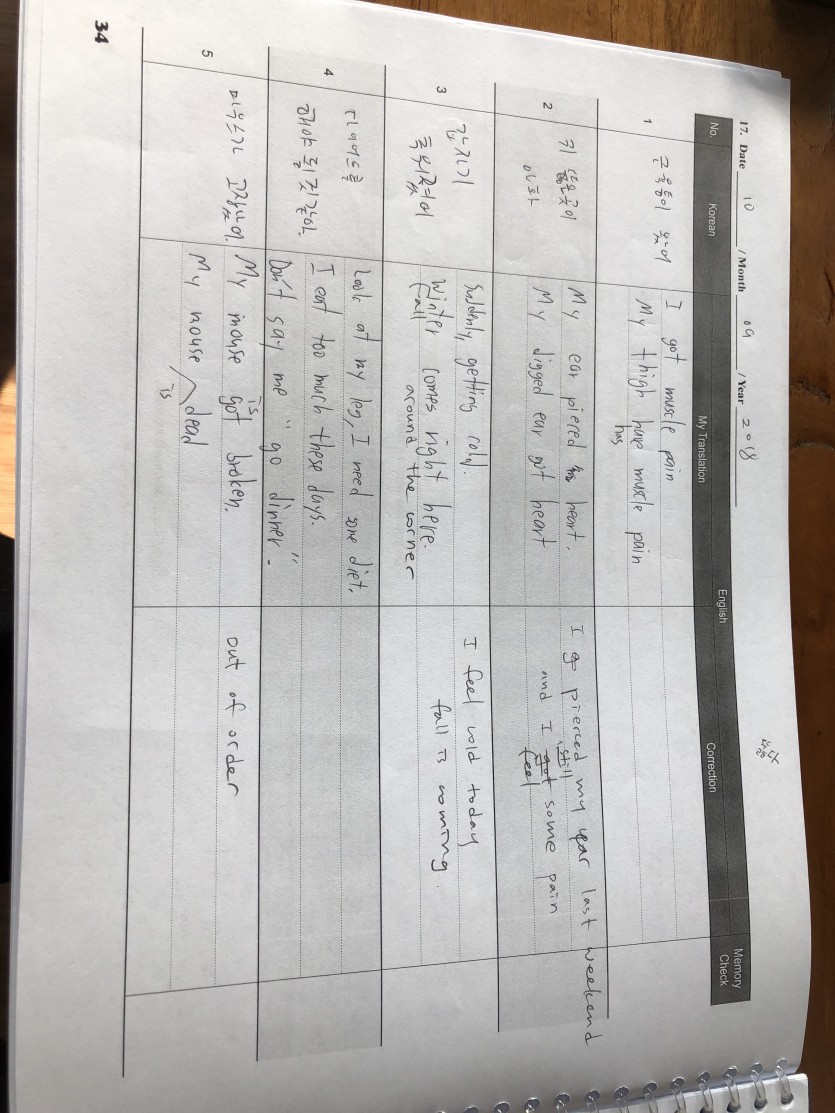 17. Date 10 / Month 09 / Year 2018
No. Korean My Translation English Correction Memory Check
1
근육통이 왔어
I got muscle pain
My thigh have muscle pain
has
2
귀 뚫은 곳이
아파
My ear pierced heart.
My digged ear got heart
I go pierced my ear last weekend
still
and I got some pain
feel
3
갑자기
추워졌어
Suddenly, getting cold.
Winter comes right here.
(Fall) around the corner
I feel cold today
fall is coming.
4
다이어트를
해야 될 것 같아.
Look at my leg, I need some diet.
I eat too much these days.
Don't say me "go dinner".
5
마우스가 고장났어.
My mouse got broken.
is
My mouse dead
is
out of order
34